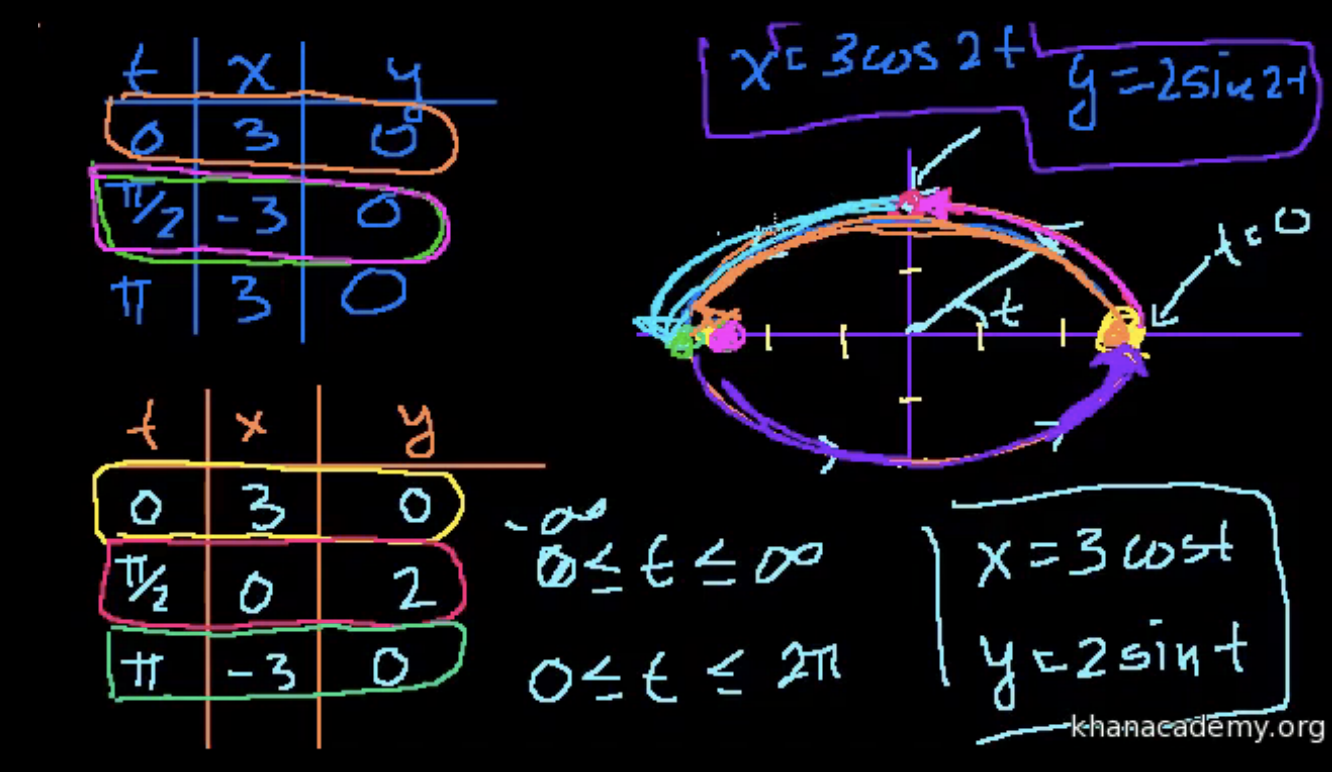 t x y
0 3 0
π/2 -3 0
π 3 0
x = 3 cos 2t
y = 2 sin 2t
t = 0
t
t x y
0 3 0
π/2 0 2
π -3 0
-∞
0 ≤ t ≤ ∞
0 ≤ t ≤ 2π
x = 3 cos t
y = 2 sin t
khanacademy.org